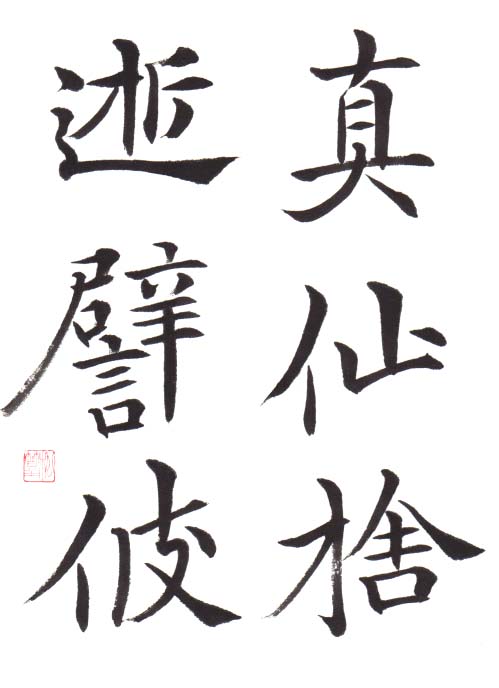 真仙捨
逝譬伎